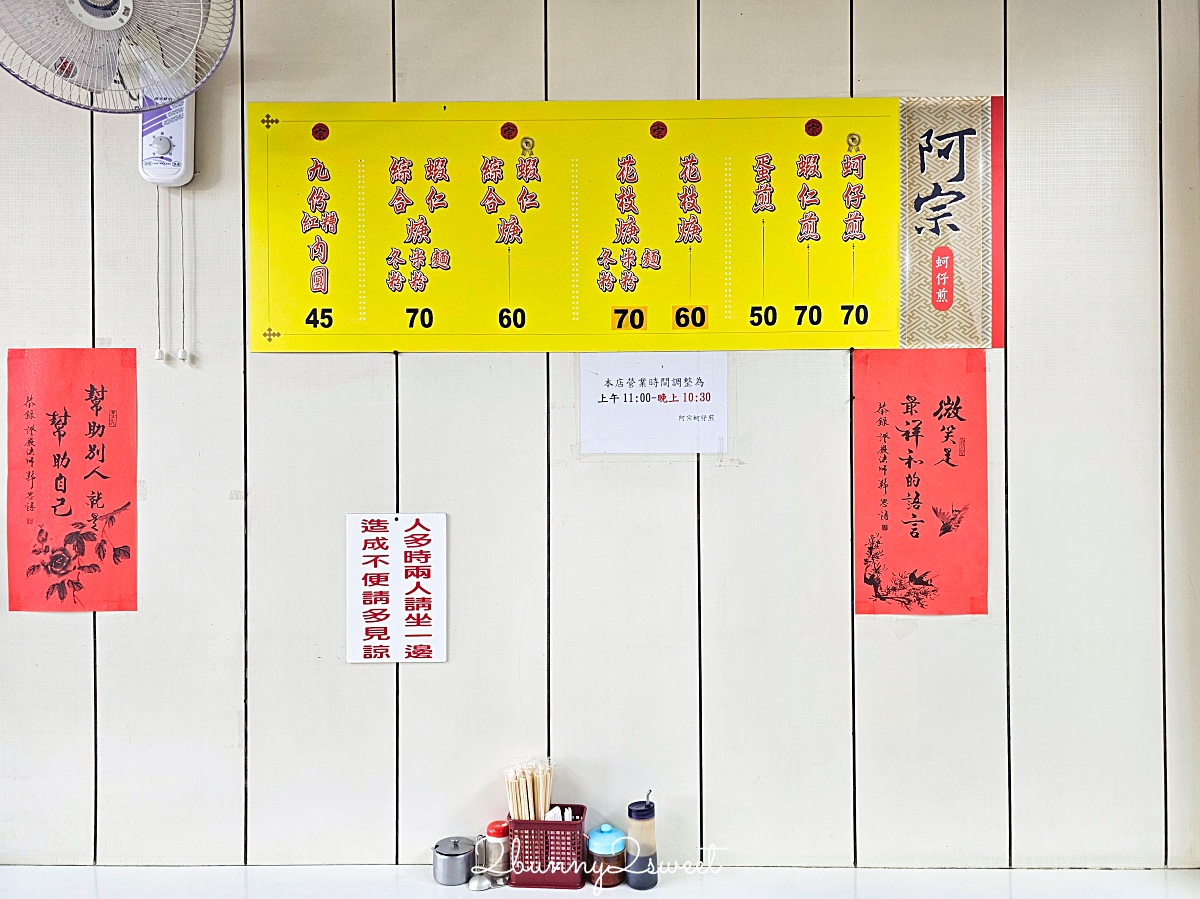 阿宗
蚵仔煎
蚵仔煎
70
蝦仁煎
70
蛋煎
50
花枝焿
60
花枝焿
麵
米粉
冬粉
70
蝦仁
綜合
焿
60
蝦仁
綜合
焿
麵
米粉
冬粉
70
九份
紅糟
肉圓
45
本店營業時間調整為
上午 11:00-晚上 10:30
阿宗蚵仔煎
微笑是
最祥和的語言
恭錄 證嚴法師靜思語
人多時兩人請坐一邊
造成不便請多見諒
幫助別人就是
幫助自己
恭錄 證嚴法師靜思語
2bunny2sweet